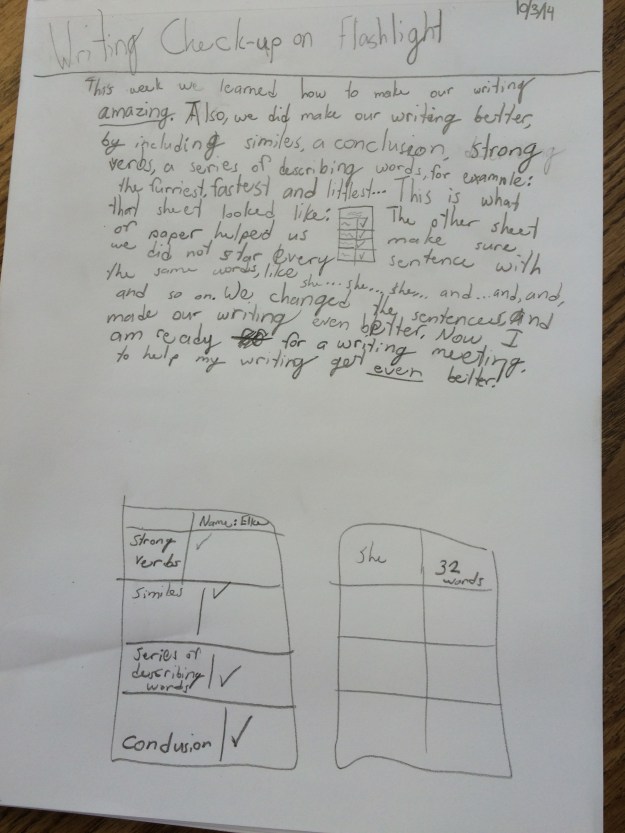 10/3/14
Writing Check-up on Flashlight
This week we learned how to make our writing
amazing. Also, we did make our writing better,
by including similes, a conclusion, strong
verbs, a series of describing words, for example:
the furriest, fastest and littlest... This is what
that sheet looked like: The other sheet
of paper helped us make sure
we did not star every sentence with
the same words, like she... she... she... and... and, and,
and so on. We, changed the sentences, and
made our writing even better. Now, I
am ready for a writing meeting.
to help my writing get even better!
Name: Elka
Strong
verbs ✓
Similes ✓
Series of
describing
words ✓
Conclusion ✓
She 32
words